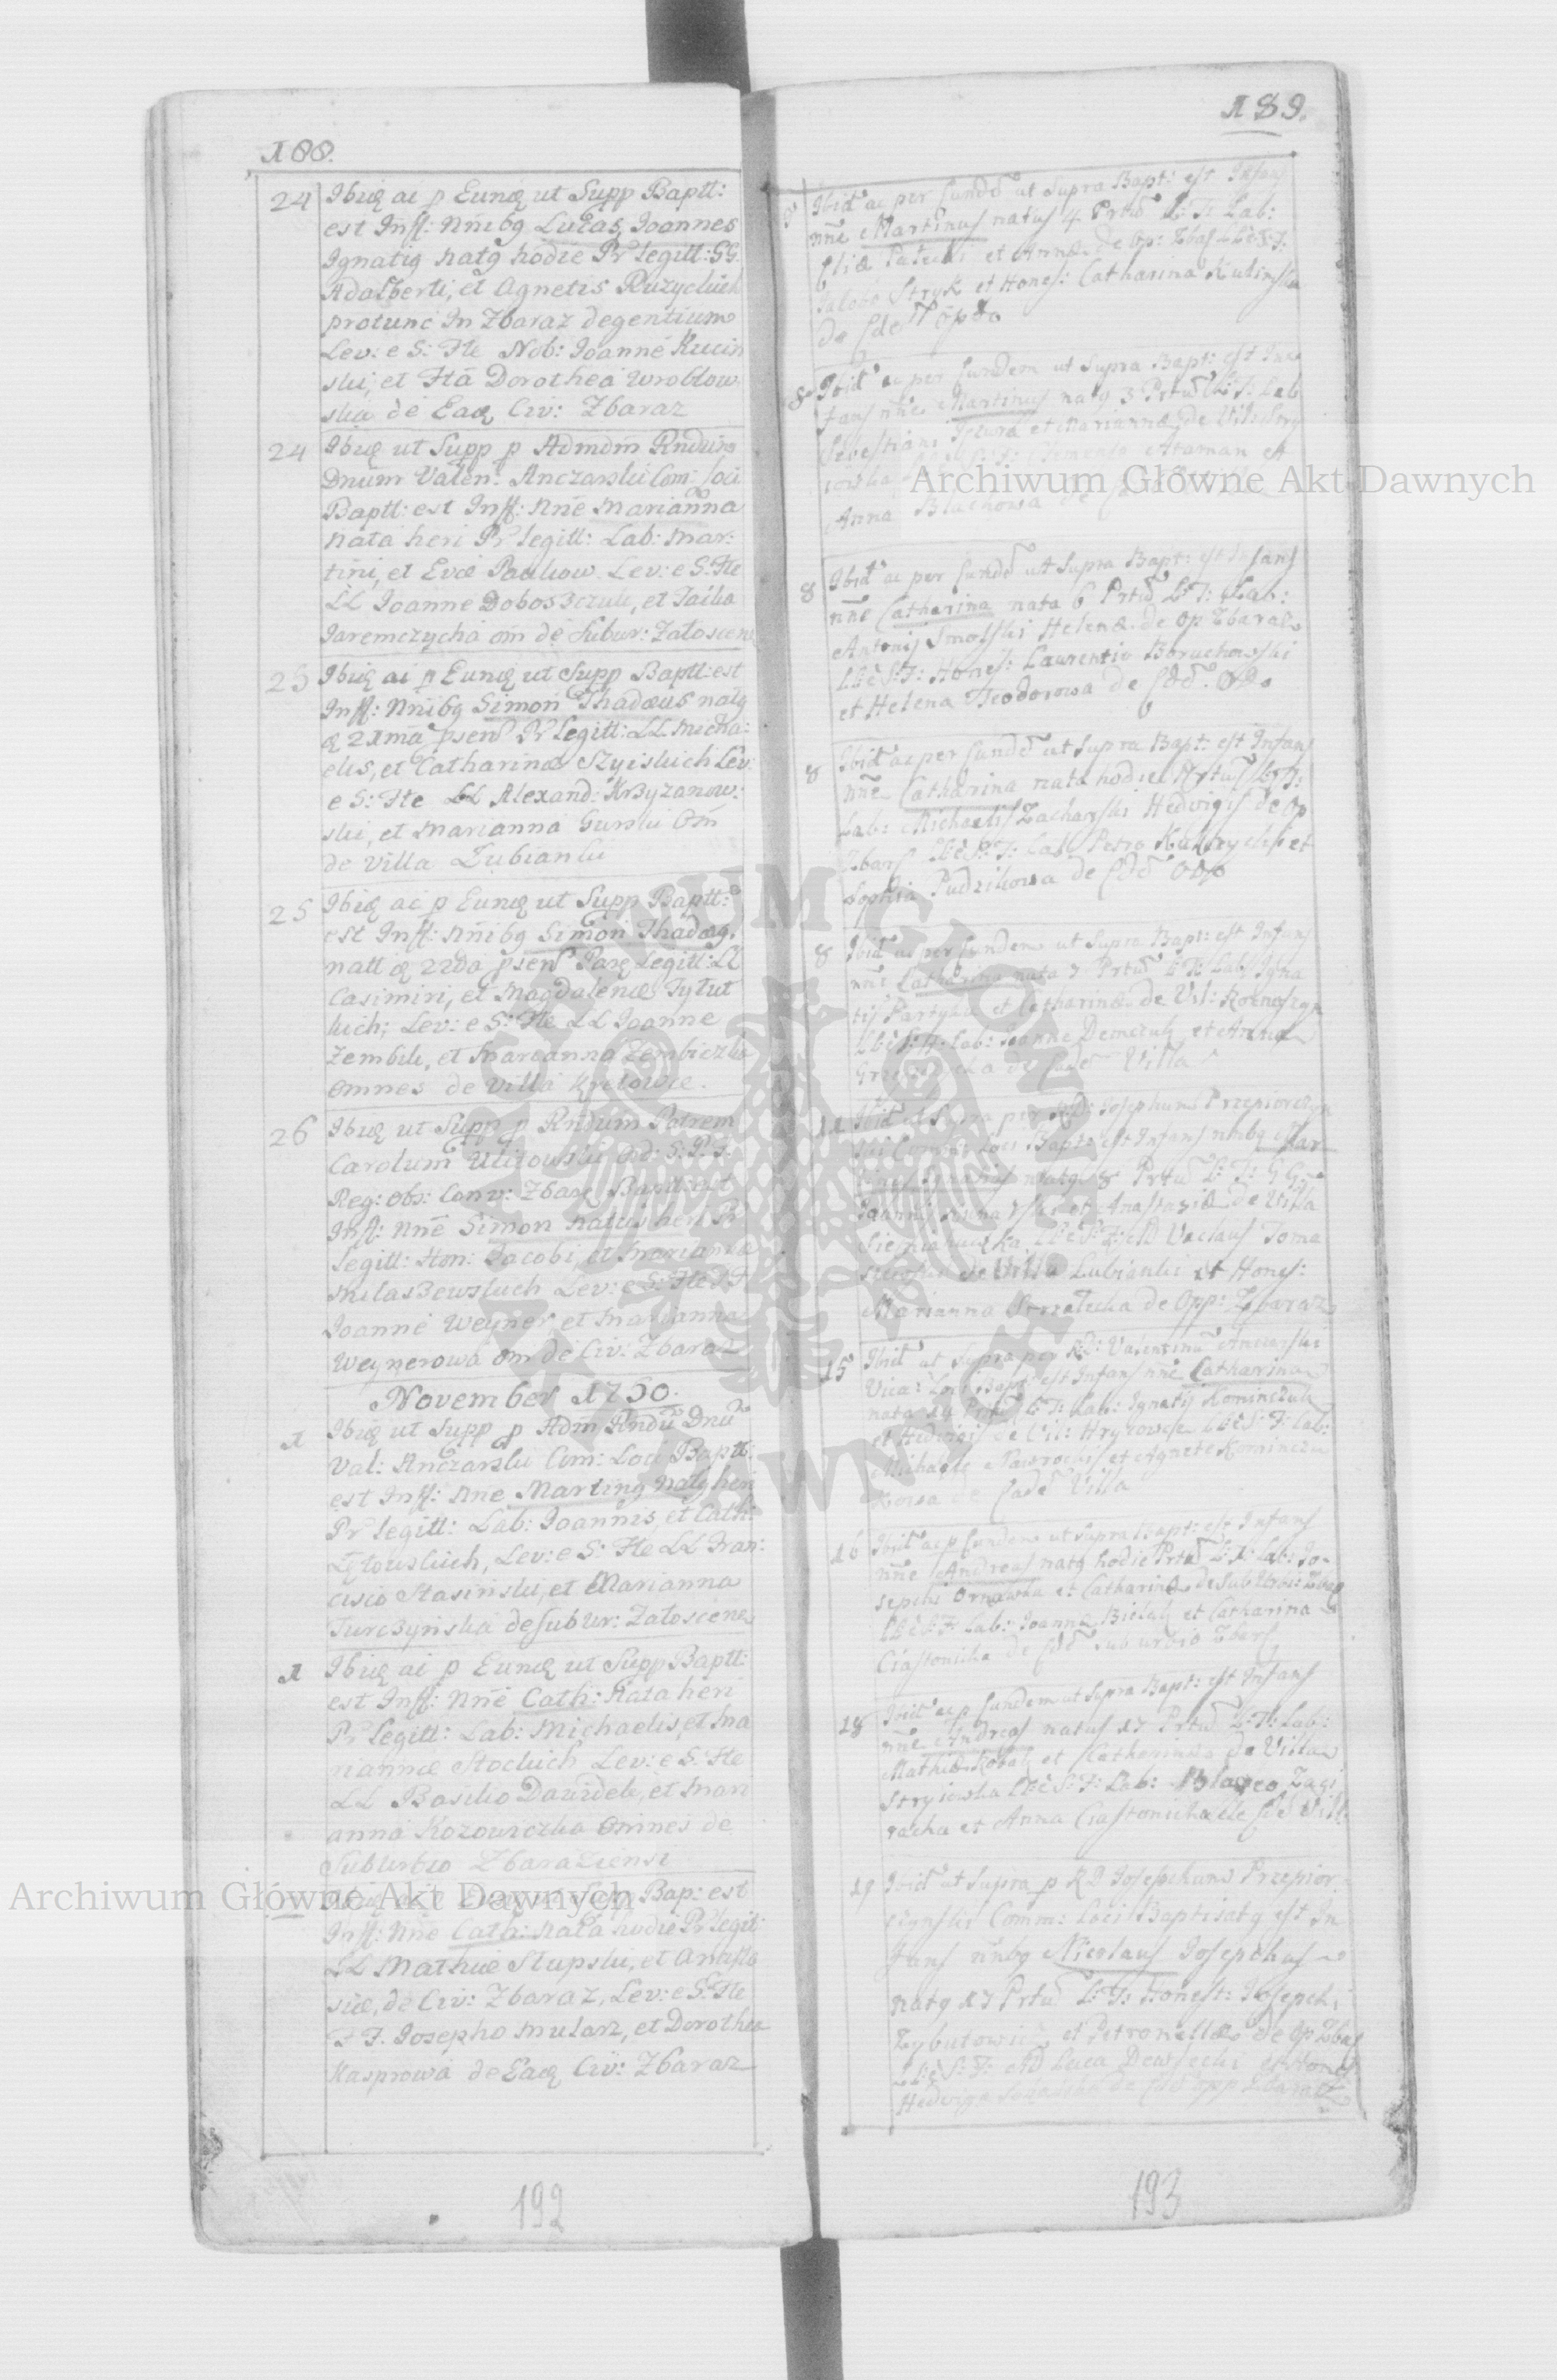 188.
24 Ibiq ac p Eunq ut Supp Baptt:
est Inff: Nnibq Lucas, Joannes
Ignatiq natq hodie Pr legitt: GG.
Adalberti, et Agnetis Ruzyckich
protunc In Zbaraz degentium
Lev: e S: Fte Nob: Joanne Kucin
ski, et Fta Dorothea Wroblow
ska de Eaq Civ: Zbaraz
24 Ibiq ut Supp p Admdm Rndum
Dnum Valen: Anczarski Com: loci
Baptt: est Inff: Nne Marianna
nata heri Pr legitt: Lab: Mar:
tini, et Evæ Paukow Lev: e S: Fte
LL Joanne Dobosczuk, et Taćka
Jaremczycha om de Subur: Załoscene
25 Ibiq ai p Eunq ut Supp Baptt: est
Inff: Nnibq Simon Thadæus natq
q 21ma psen Pr legitt: LL Micha:
elis, et Catharinæ Szyiskich Lev:
e S: Fte LL Alexand: Krzyzanow:
ski, et Marianna Gursku Om
de Villa Łubianki
25 Ibiq ac p Eunq ut Supp Baptt:
est Inff: Nnibq Simon Thadæq
natt q 22da psen Parq Legitt: LL
Casimiri, et Magdalenæ Tytut
kich; Lev: e S: Fte LL Joanne
Zembik, et Marianna Zembiczka
omnes de Villa Kretowce.
26 Ibiq ut Supp p Rndum Patrem
Carolum Ulitowski Ord: S. P. F.
Reg: obs: Conv: Zbarz Baptt: est
Inff: Nne Simon natus heri Pr
legitt: Hon: Jacobi, et Mariannæ
Milaszewskich Lev: e S: Fte FF
Joanne Weyner et Marianna
Weynerowa om de Civ: Zbaraz
November 1750.
1 Ibiq ut Supp p Adm Rndu Dnu
Val: Anczarski Com: Loci Baptt:
est Inff: Nne Martinq natq heri
Pr legitt: Lab: Joannis, et Cath:
Łętowskich, Lev: e S: Fte LL Fran:
cisco Stasinski, et Marianna
Turczynska de Subur: Załoscene
1 Ibiq ai p Eunq ut Supp Baptt:
est Inff: Nne Cath: Nata heri
Pr legitt: Lab: Michaelis, et Ma
riannæ Stockich Lev: e S: Fte
LL Basilio Dawidek, et Mari
anna Kozowiczka Omnes de
Suburbio Zbaraziensi
Ibiq ai p Eunq ut Supp Bap: est
Inff: Nne Cath: Nata hodie Pr legit:
LL Mathiæ Słupski, et Anasta
siæ, de Civ: Zbaraz, Lev: e S: Fte
FF. Josepho Mularz, et Dorothea
Kasprowa de Eaq Civ: Zbaraz
192
189.
8 Ibid ac per Eundd ut Supra Bapt: est Infans
nne Martinus natus 4 Prtu L: T: Lab:
Eliæ et Annæ de Op: Zbaż LL è S: F:
Jakobo Stryk et Hones: Catharina Kulinska
de Edd Opdo
8 Ibid ac per Eundem ut Supra Bapt: est In
fans nne Martinus natq 3 Prtu L: T: Lab
et Mariannæ de Vil: Stry
iowka Ataman et
Anna Blachowa de
8 Ibid ac per Eundd ut Supra Bapt: est Infans
nne Catharina nata 6 Prtu L: T: Lab:
Antonij Smolski Helenæ de Op Zbaraz
LL è S: F: Hones: Laurentio Boruchowski
et Helena Teodorowa de Edd. Opdo
8 Ibid ac per Eundd ut Supra Bapt: est Infans
nne Catharina nata hodie Prtu L: T:
Lab: Michaelis Zacharski Hedvigis de Op
Zbarż LL è S: F: Lab Petro et
Sophia Pudzikowa de Edd Opdo
8 Ibid ac per Eundem ut Supra Bapt: est Infans
nne Catharina nata 7 Prtu L: T: Lab: Igna
tij Partyka et Catharinæ de Vil:
LL è S: F: Lab: Joanne Demczuk et Anna
de Ead Villa
11 Ibid ut Supra per RD: Josephum Przepiorczyn
ski Comm: Loci Bapt: est Infans nnibq Mar
tinus Ignatius natq 8 Prtu L: T: GG
Joannis et Anastasiæ de Villa
LL è S: F: MD Vaclaus Toma
de Villa Lubianki et Hones:
Marianna Strzałecka de Opp: Zbaraz
15 Ibid ut Supra per RD: Valentinu Anczarski
Vica: Loci Bapt est Infans nne Catharina
nata 14 Prtu L: T: Lab: Ignatij Kominczuk
et Hedvigis de Vil: Hryzowce LL è S: F: Lab:
Michaele Nawrockij et Agnete Kominczu
kowa de Ead Villa
16 Ibid ac p Eundem ut Supra Bapt: est Infans
nne Andreas natq hodie Prtu L: T: Lab: Jo-
sephi et Catharinæ de Suburbio: Zbaż
LL è S: F: Lab: Joanne Bielak et Catharina
Ciastonicha de Edd suburbio Zbarż
18 Ibid ac p Eundem ut Supra Bapt: est Infans
nne Andreas natus 17 Prtu L: T: Lab:
Mathiæ Kobak et Catharinæ de Villa
Stryiowka LL è S: F: Lab: Blazeo Zagi
racha et Anna Ciastonicha de Edd Vill:
19 Ibid ut Supra p RD Josephum Przepior
czynski Comm: Loci Baptisatq est In
fans nnbq Nicolaus Josephus
natq 17 Prtu L: T: Honest: Josephi
Zybutowicz et Petronellæ de Op Zbaż
LL è S: F: MD Luca et Hones
Hedviga de Edd Opp Zbaraz
193
Archiwum Główne Akt Dawnych
Archiwum Główne Akt Dawnych
ARCHIWUM GŁÓWNE
AKT DAWNYCH